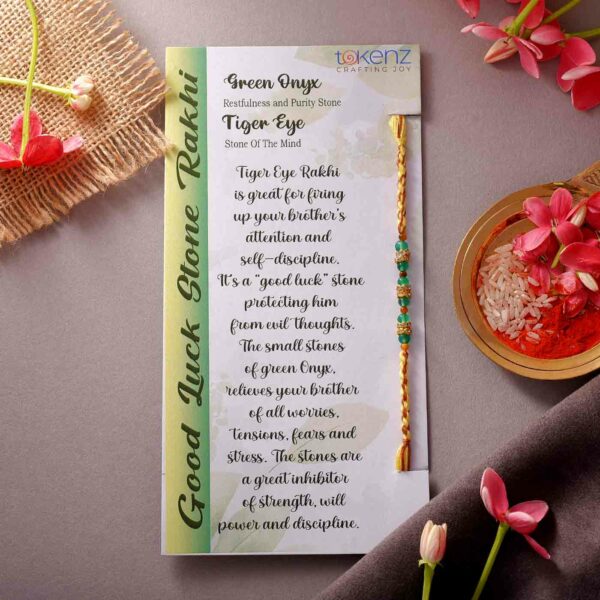 tokenz
CRAFTING JOY
Good Luck Stone Rakhi
Green Onyx
Restfulness and Purity Stone
Tiger Eye
Stone Of The Mind
Tiger Eye Rakhi
is great for firing
up your brother's
attention and
self-discipline.
It's a "good luck" stone
protecting him
from evil thoughts.
The small stones
of green Onyx,
relieves your brother
of all worries,
tensions, fears and
stress. The stones are
a great inhibitor
of strength, will
power and discipline.